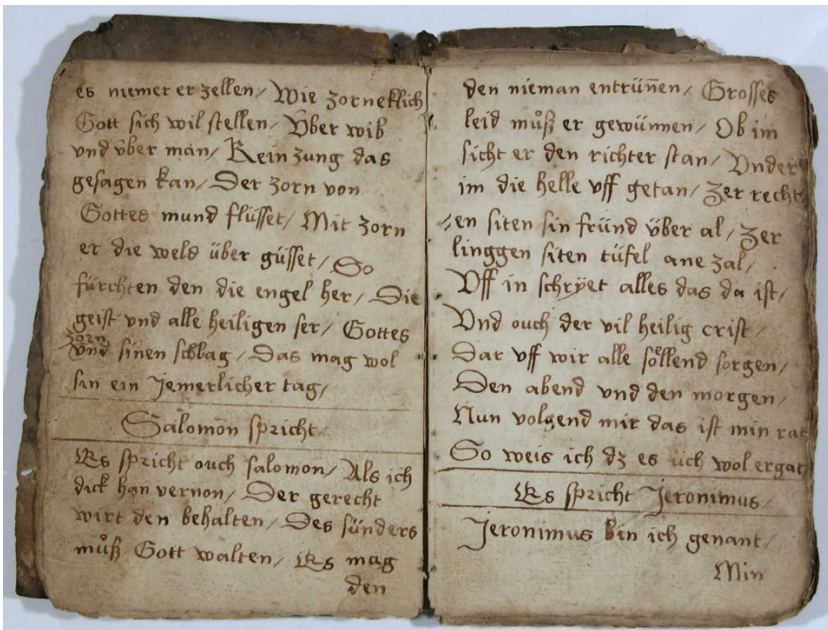 es niemer erzellen/ Wie zorneklich
Gott sich wil stellen/ Vͤber wib
vnd vͤber man/ Kein zung das
gesagen kan/ Der zorn von
Gottes mund flüsset/ Mit zorn
er die welt über güsset/ So
fürchten den die engel her/ Die
geist vnd alle heiligen ser/ Gottes
zorn
Vnd sinen schlag/ Das mag wol
sin ein Jemerlicher tag/
Salomon spricht/
Es spricht ouch salomon/ Als ich
dick han vernon/ Der gerecht
wirt den behalten/ Des sünders
muͦß Gott walten/ Es mag
den
den nieman entrün̄en/ Grosses
leid muͦß er gewünnen/ Ob im
sicht er den richter stan/ Vnder
im die helle vff getan/ Zer recht
⸗en siten sin fründ über al/ Zer
linggen siten tüfel ane zal/
Vff in schryet alles das da ist/
Vnd ouch der vil heilig crist/
Dar vff wir alle söllend sorgen/
Den abend vnd den morgen/
Nun volgend mir das ist min rat
So weis ich dz es üch wol ergat
Es spricht Jeronimus/
Jeronimus bin ich genant/
Min